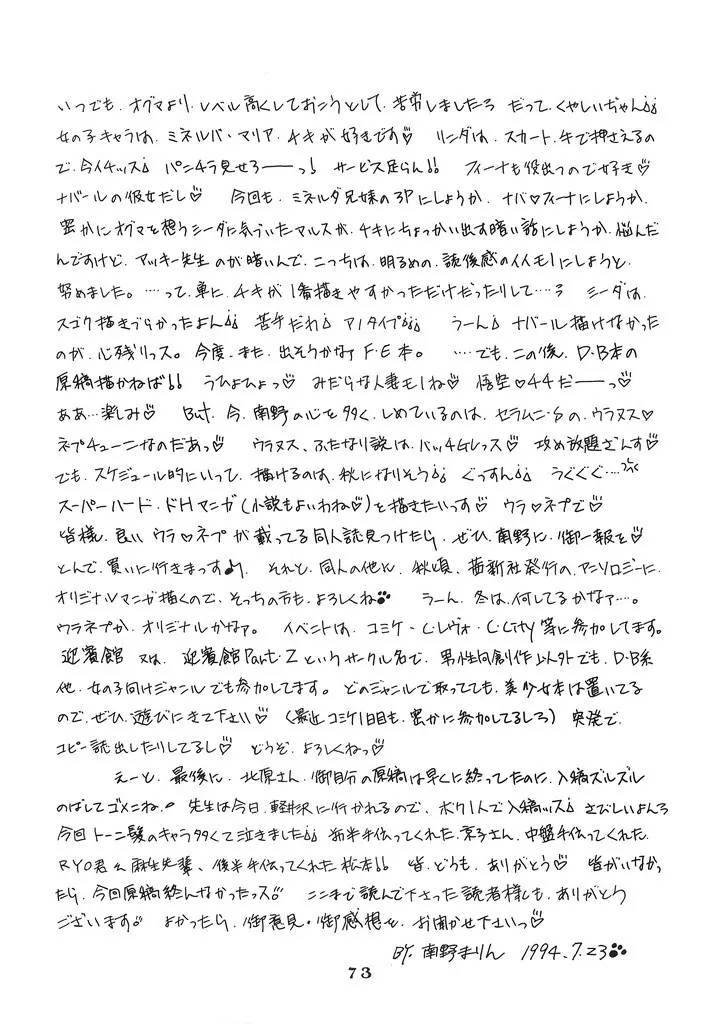 いつでも、オグマより、レベル高くしておこうとして、苦労しましたろ だって、くやしいぢゃん♩♩
女の子キャラは、ミネルバ・マリア・チキが好きです♡ リンダは、スカート、手で押さえるの
で、今イチッス♩ パンチラ見せろーーっ! サービス足らん!! フィーナも役出つので好き♡
ナバールの彼女だし♡ 今回も、ミネルダ兄妹の3Pにしようか、ナバ♡フィーナにしようか、
密かにオグマを想うシーダに気づいたマルスが、チキにちょっかい出す暗い話にしようか、悩んだ
んですけど、アッキー先生のが暗いんで、こっちは、明るめの、読後感のイイモノにしようと、
努めました。…って、単に、チキが1番描きやすかっただけだったりして…? シーダは、
スゴク描きづらかったよん♩♩ 苦手だわ♩ アノタイプ♩♩♩ うーん♩ ナバール描けなかった
のが、心残りっス。今度、また、出そうかなF・E本。 …でも、この後、D・B本の
原稿描かねば!! うひょひょっ♡ みだらな人妻モノね♡ 悟空♡44だーーっ♡
ああ…楽しみ♡ But、今、南野の心を多く、しめているのは、セラムン・Sの、ウラヌス♡
ネプチューンなのだあっ♡ ウラヌス、ふたなり説は、バッチGレッス♡ 攻め放題ざんす♡
でも、スケジュール的にいって、描けるのは、秋になりそう♩♩ ぐっすん♩♩ うぐぐぐ…
スーパーハード・ドHマンガ(小説もよいわね♡)を描きたいっす♡ ウラ♡ネプで♡
皆様、良いウラ♡ネプが載ってる同人誌見つけたら、ぜひ、南野に、御一報を♡
とんで、買いに行きまっす♪ それと、同人の他に、秋頃、茜新社発行の、アンソロジーに、
オリジナルマンガ描くので、そっちの方も、よろしくね うーん、冬は、何してるかなァ…。
ウラネプか、オリジナルかなァ。 イベントは、コミケ・C・レヴォ・C・City等に参加してます。
迎賓館 又は、迎賓館Part・Zというサークル名で、男性向創作以外でも、D・B系
他、女の子向けジャンルでも参加してます。どのジャンルで取ってても、美少女本は置いてる
ので、ぜひ、遊びにきて下さい♡ (最近コミケ1日目も、密かに参加してるしろ) 突発で、
コピー誌出したりしてるし♡ どうぞ、よろしくねっ♡
えーと、最後に、北原さん、御自分の原稿は早くに終ってたのに、入稿ズルズル
のばしてゴメンね。 先生は今日、軽井沢に行かれるので、ボク1人で入稿ッス♩ さびしいよんろ
今回トーン髪のキャラ多くて泣きました♩♩ 前半手伝ってくれた、京子さん、中盤手伝ってくれた、
RYO君&麻生先輩、後半手伝ってくれた松本!! 皆、どうも、ありがとう♡ 皆がいなかっ
たら、今回原稿終んなかったっス!! ここまで読んで下さった読者様にも、ありがとう
ございます!! よかったら、御意見・御感想を、お聞かせ下さいっ♡
BY. 南野まりん 1994.7.23
73